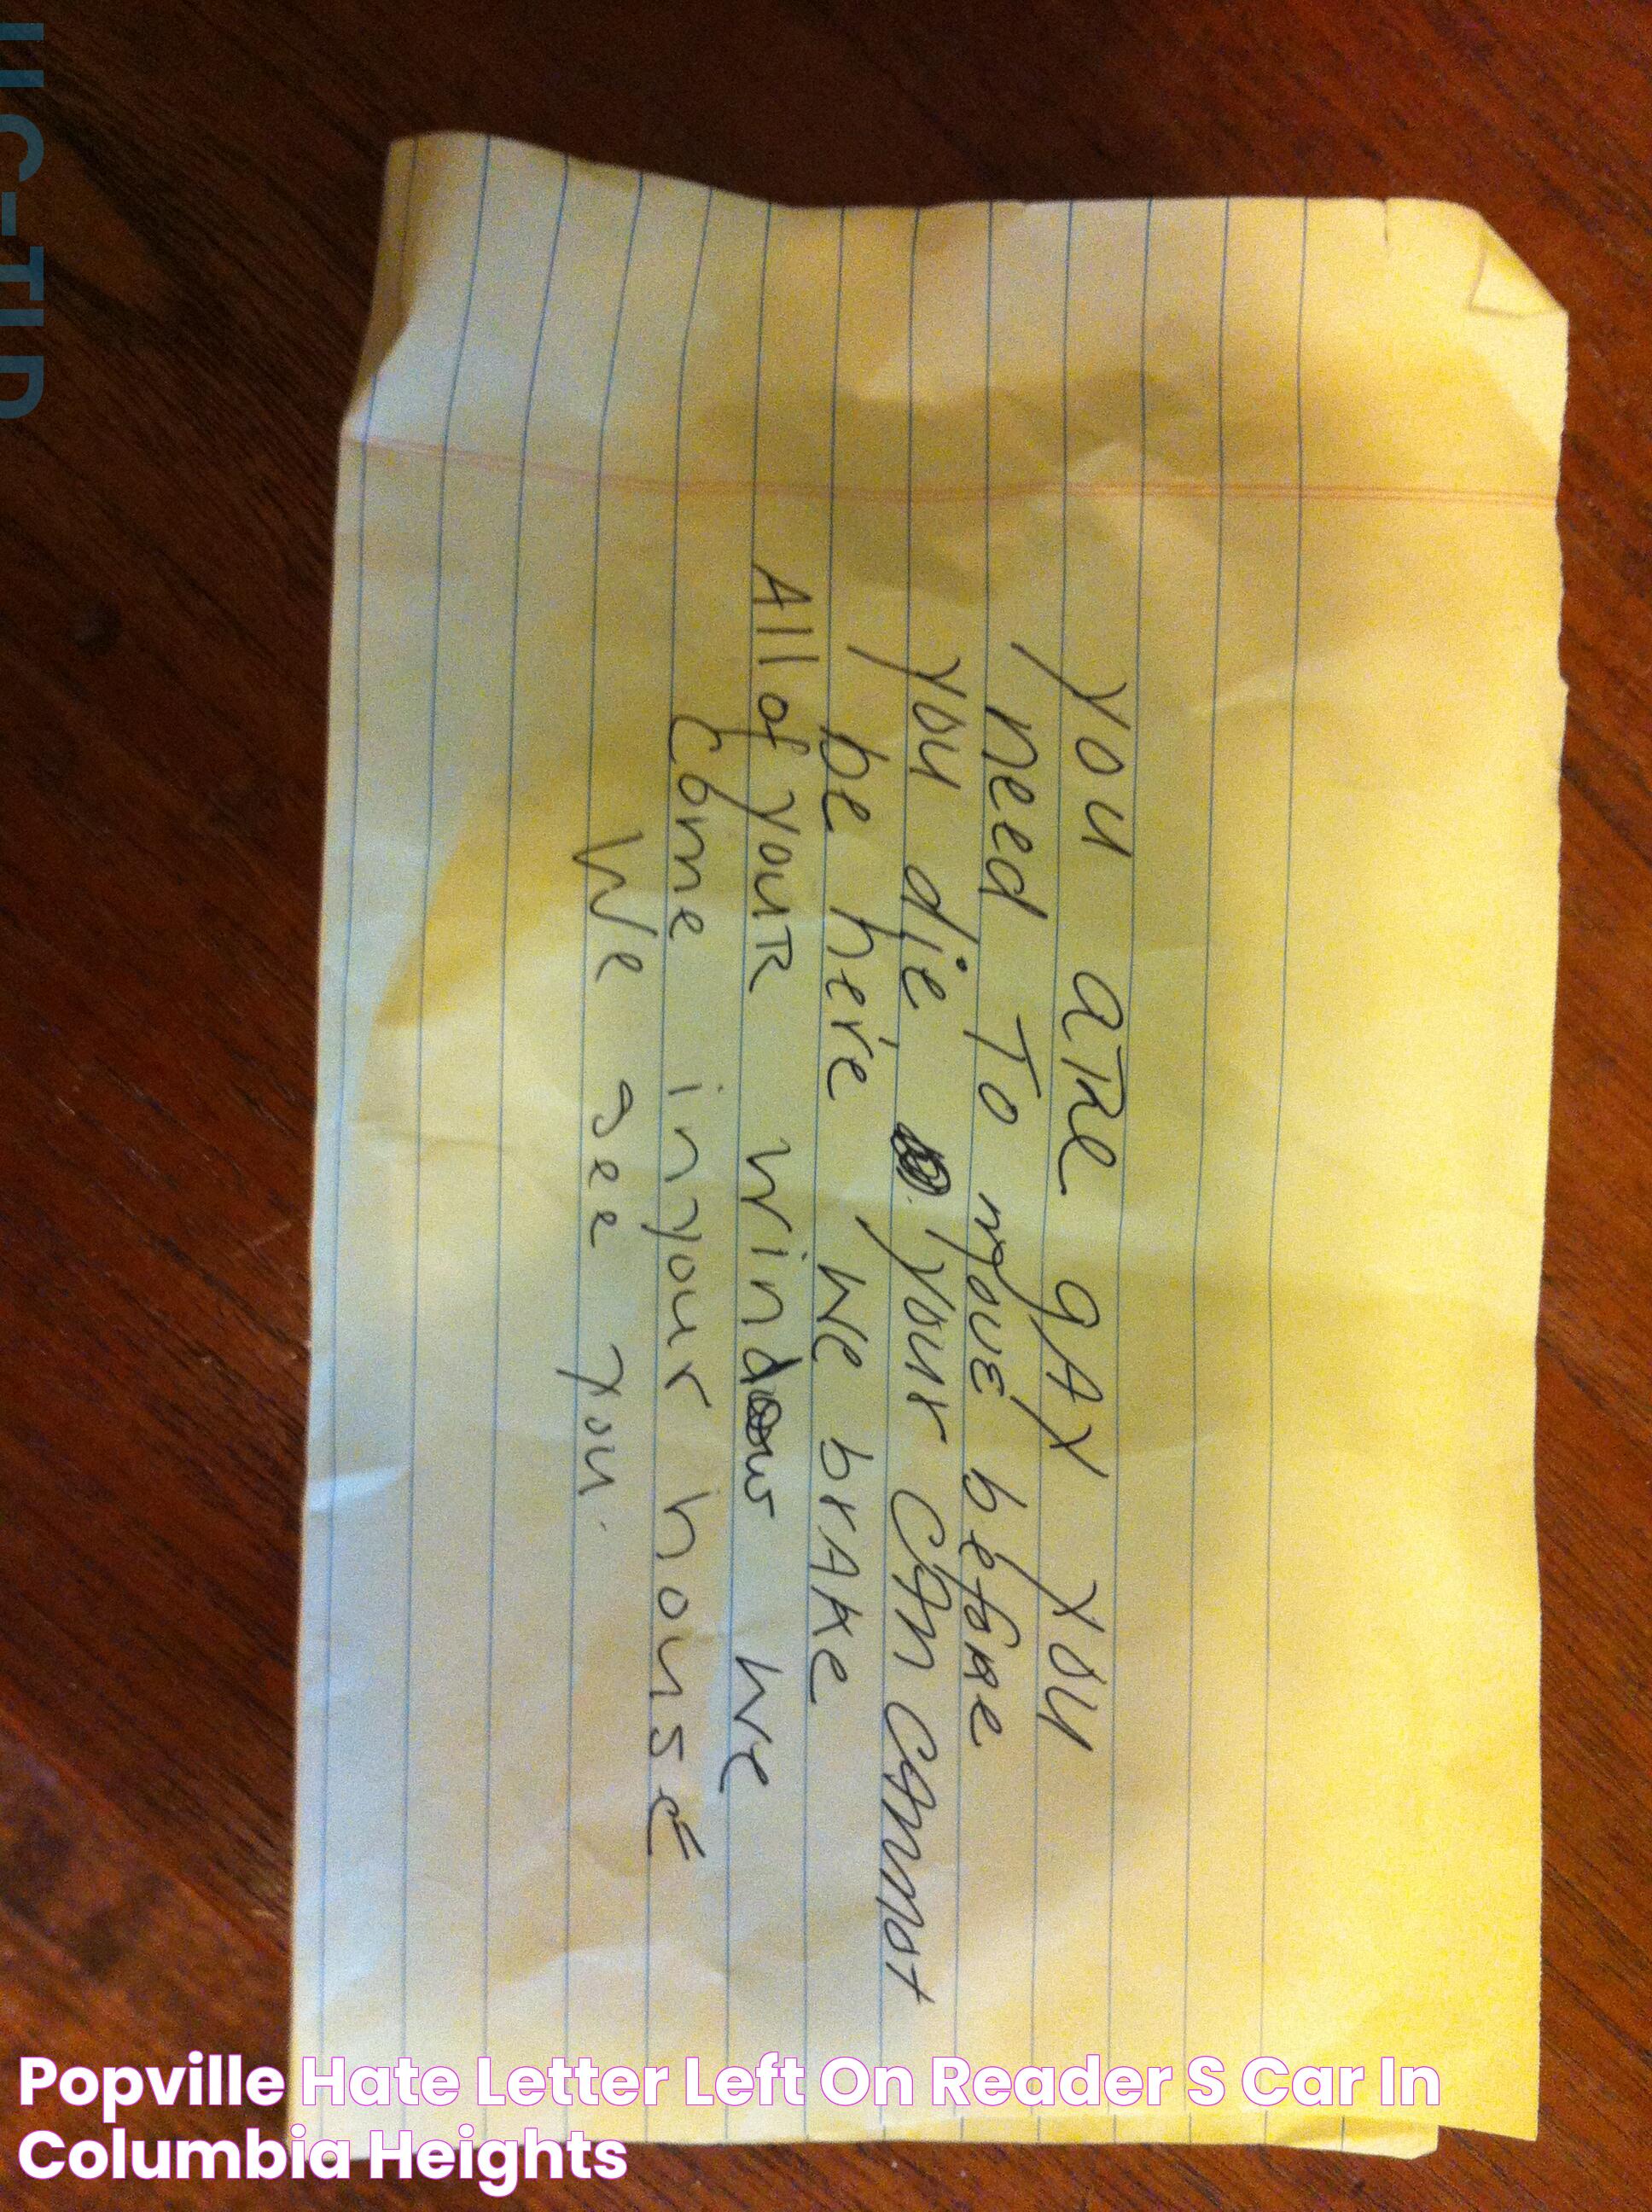 you are gAy you
need To move before
you die your CAn CAnnot
be here We brAke
All of youR window We
Come in your house
We see you.
Popville Hate Letter Left On Reader S Car In
Columbia Heights